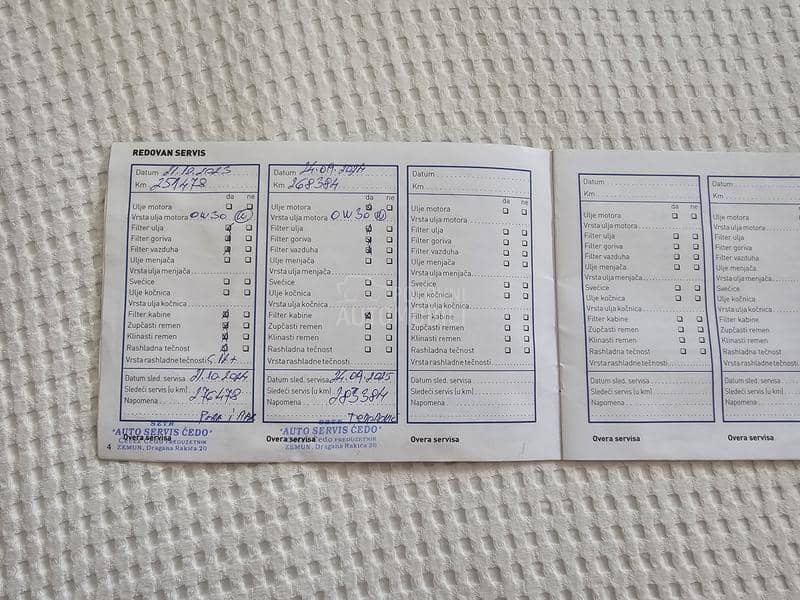 REDOVAN SERVIS
Datum 21.10.2023
Km 259478
da ne
Ulje motora
Vrsta ulja motora 0W30
Filter ulja
Filter goriva
Filter vazduha
Ulje menjača
Vrsta ulja menjača
Svećice
Ulje kočnica
Vrsta ulja kočnica
Filter kabine
Zupčasti remen
Klinasti remen
Rashladna tečnost
Vrsta rashladne tečnosti
Datum sled. servisa 21.10.2024
Sledeći servis (u km) 276478
Napomena
SZTR
"AUTO SERVIS ČEDO"
PREDUZETNIK
Overa servisa
ZEMUN, Dragana Rakića 20
4
Datum 24.09.2024
Km 268384
da ne
Ulje motora
Vrsta ulja motora 0W30
Filter ulja
Filter goriva
Filter vazduha
Ulje menjača
Vrsta ulja menjača
Svećice
Ulje kočnica
Vrsta ulja kočnica
Filter kabine
Zupčasti remen
Klinasti remen
Rashladna tečnost
Vrsta rashladne tečnosti
Datum sled. servisa 24.09.2025
Sledeći servis (u km) 283384
Napomena
SZTR
"AUTO SERVIS ČEDO"
PREDUZETNIK
Overa servisa
ZEMUN, Dragana Rakića 20
Datum
Km
da ne
Ulje motora
Vrsta ulja motora
Filter ulja
Filter goriva
Filter vazduha
Ulje menjača
Vrsta ulja menjača
Svećice
Ulje kočnica
Vrsta ulja kočnica
Filter kabine
Zupčasti remen
Klinasti remen
Rashladna tečnost
Vrsta rashladne tečnosti
Datum sled. servisa
Sledeći servis (u km)
Napomena
Overa servisa
Datum
Km
da ne
Ulje motora
Vrsta ulja motora
Filter ulja
Filter goriva
Filter vazduha
Ulje menjača
Vrsta ulja menjača
Svećice
Ulje kočnica
Vrsta ulja kočnica
Filter kabine
Zupčasti remen
Klinasti remen
Rashladna tečnost
Vrsta rashladne tečnosti
Datum sled. servisa
Sledeći servis (u km)
Napomena
Overa servisa
Datum
Km
Ulje motora
Vrsta ulja motora
Filter ulja
Filter goriva
Filter vazduha
Ulje menjača
Vrsta ulja menjača
Svećice
Ulje kočnica
Vrsta ulja kočnica
Filter kabine
Zupčasti remen
Klinasti remen
Rashladna tečnost
Vrsta rashladne
Datum sled. servisa
Sledeći servis (u
Napomena
Overa servisa